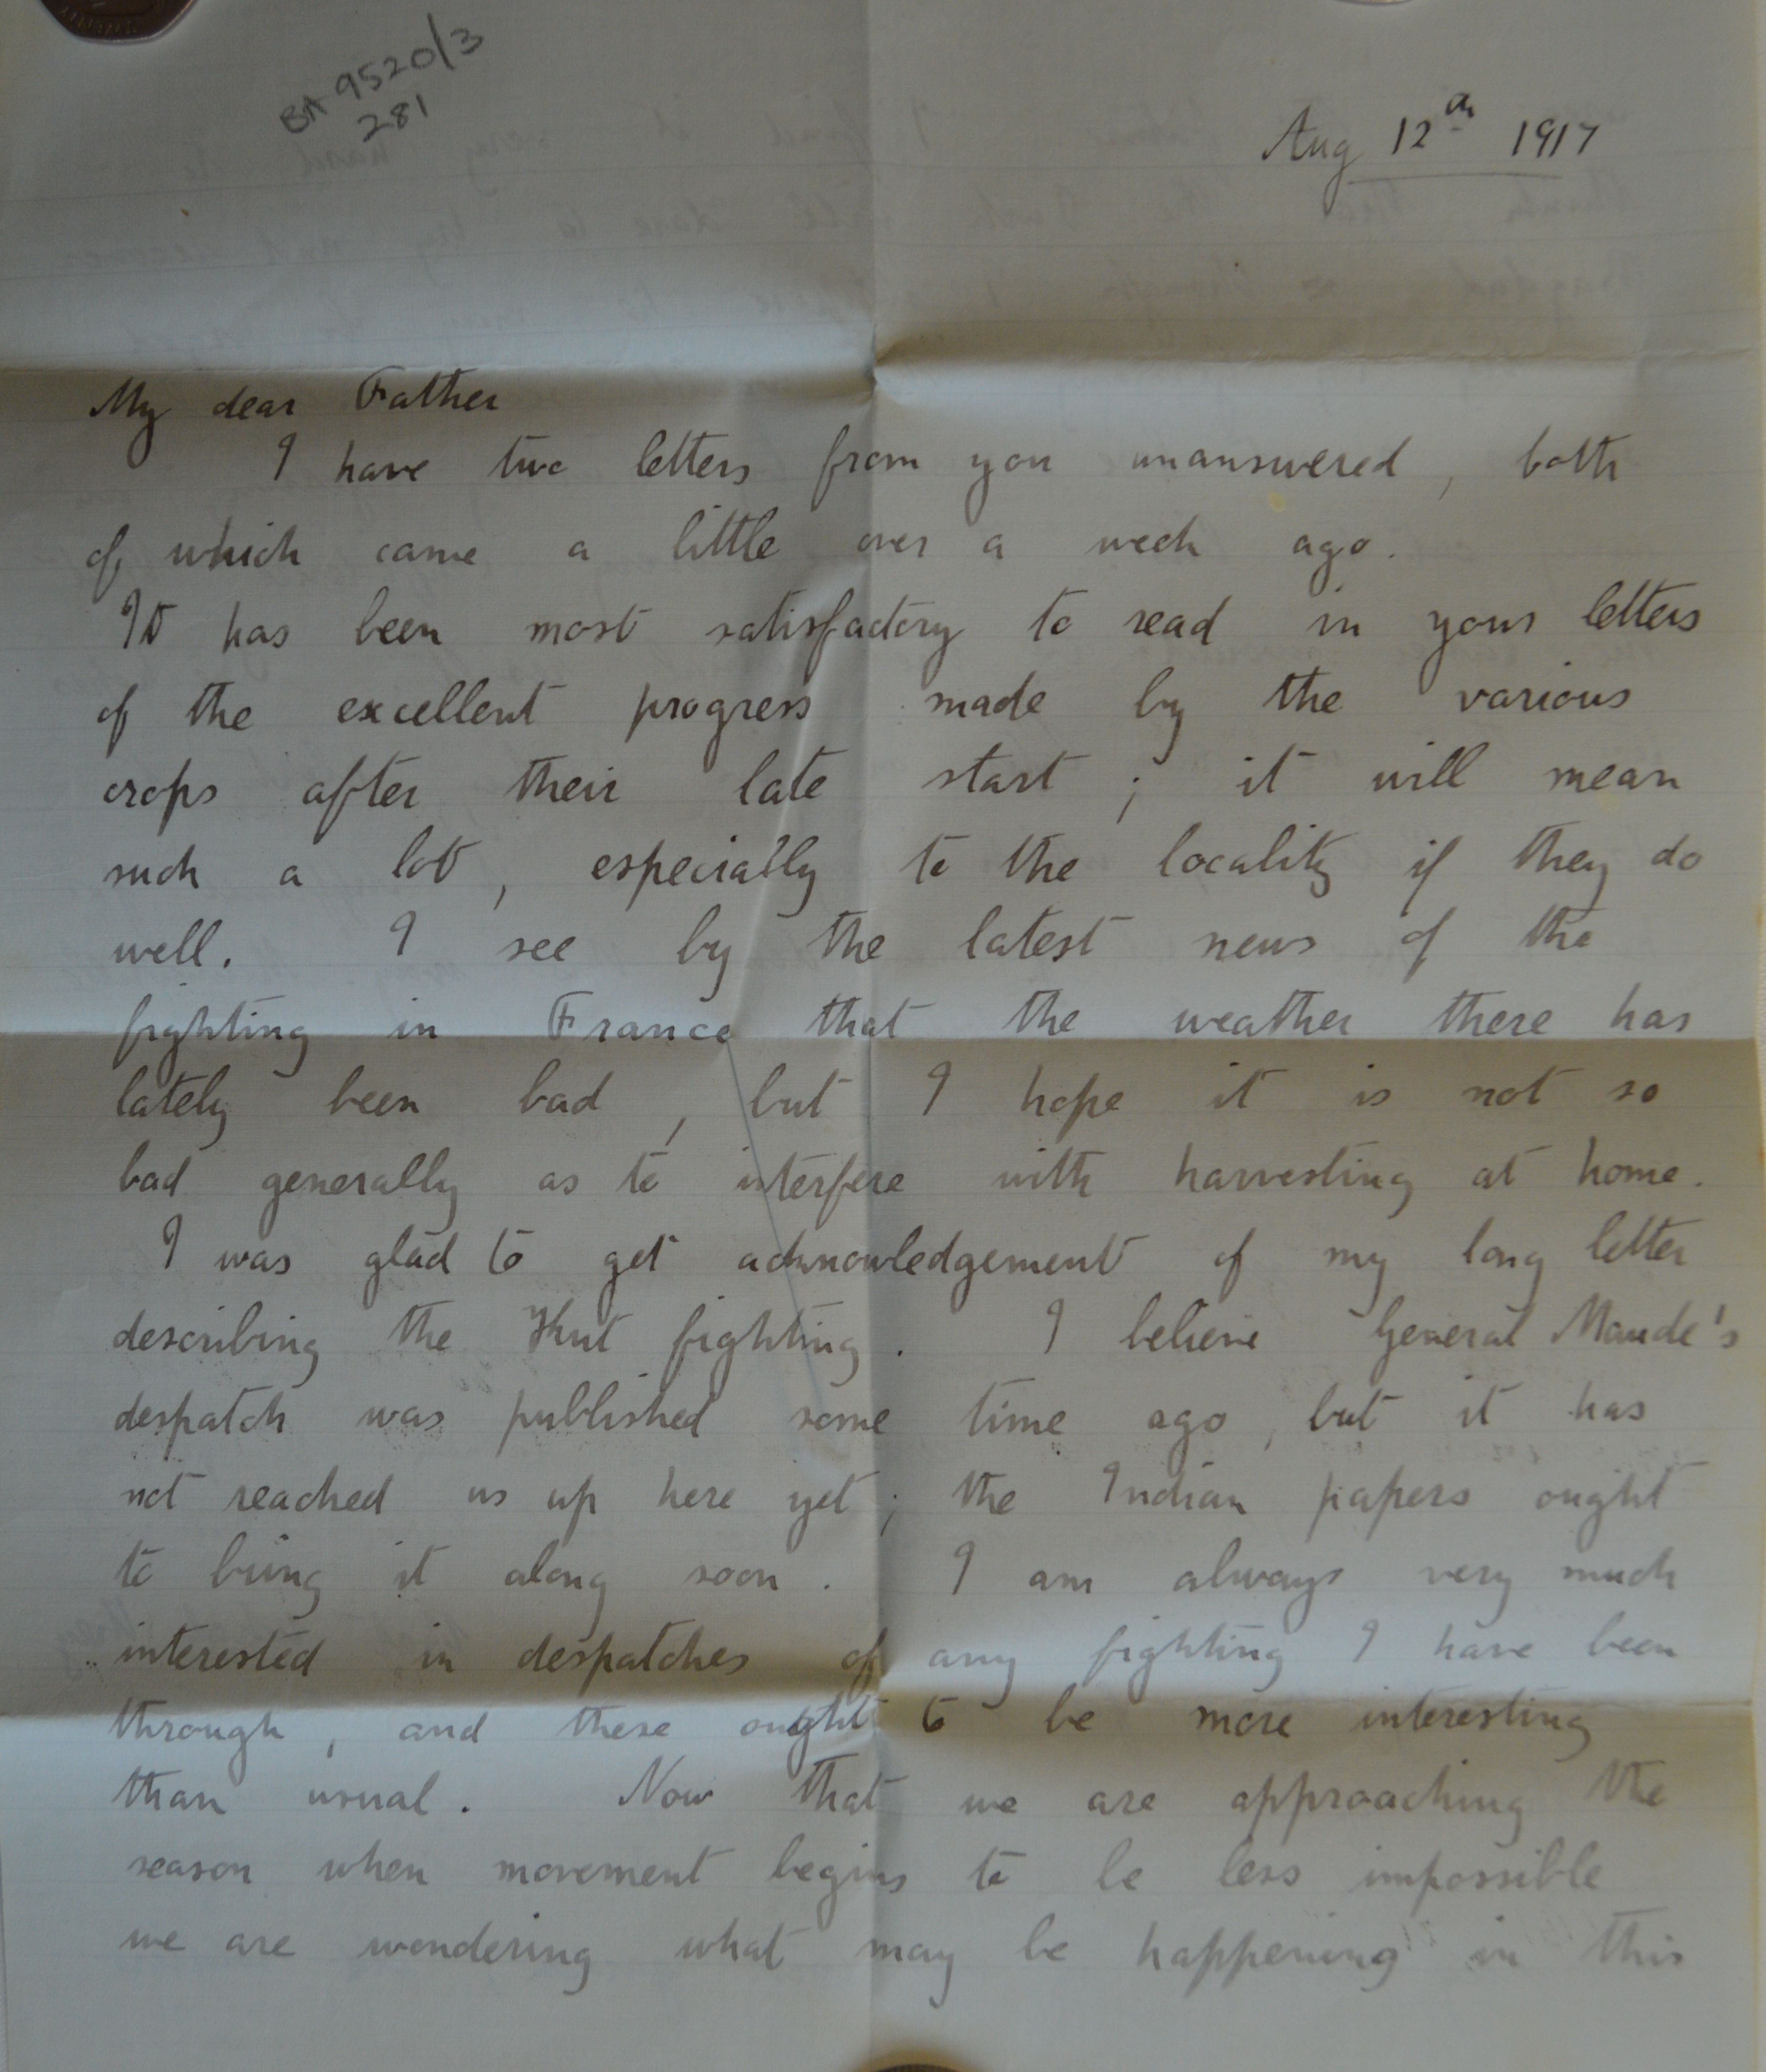 BA 9520/3
281
Aug 12th 1917
My dear Father
I have two letters from you unanswered, both
of which came a little over a week ago.
It has been most satisfactory to read in your letters
of the excellent progress made by the various
crops after their late start; it will mean
such a lot, especially to the locality if they do
well. I see by the latest news of the
fighting in France that the weather there has
lately been bad, but I hope it is not so
bad generally as to interfere with harvesting at home.
I was glad to get acknowledgement of my long letter
describing the Kut fighting. I believe General Maude's
despatch was published some time ago, but it has
not reached us up here yet; the Indian papers ought
to bring it along soon. I am always very much
interested in despatches of any fighting I have been
through, and these ought to be more interesting
than usual. Now that we are approaching the
season when movement begins to be less impossible
we are wondering what may be happening in this